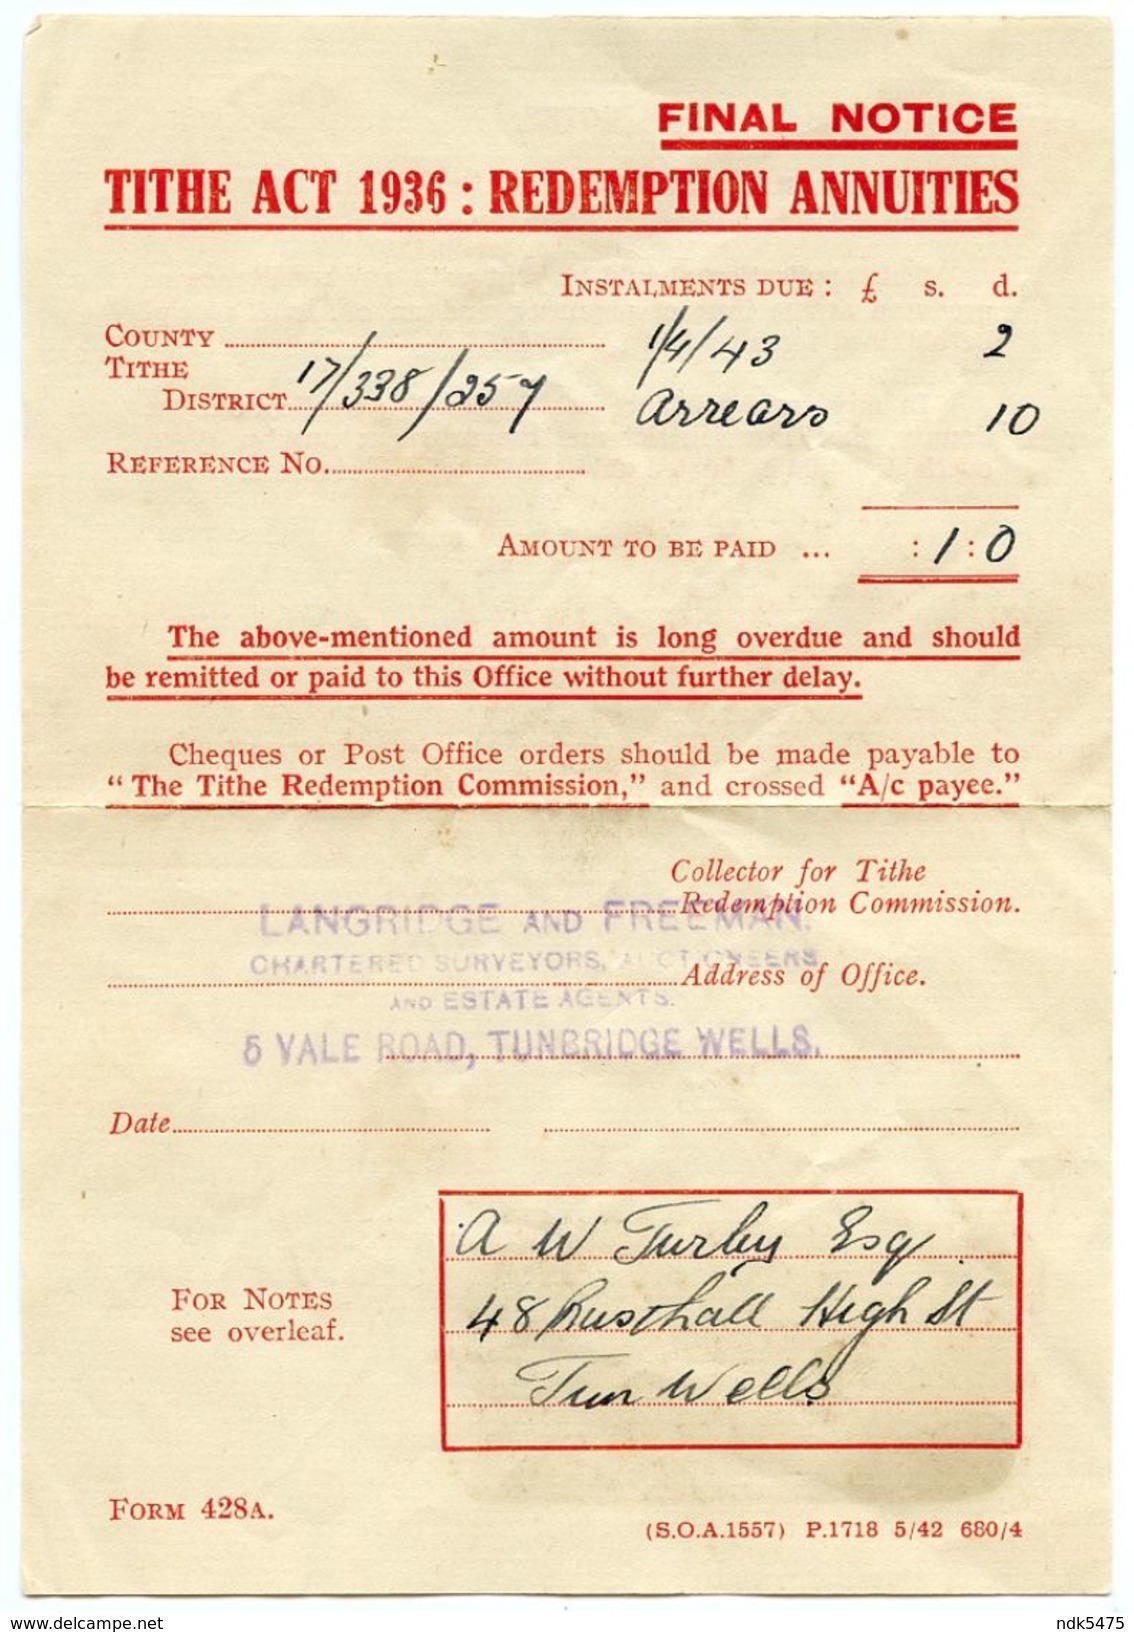 FINAL NOTICE
TITHE ACT 1936 : REDEMPTION ANNUITIES
INSTALMENTS DUE : £ s. d.
COUNTY 1/4/43 2
TITHE
DISTRICT 17/338/257 Arrears 10
REFERENCE No.
AMOUNT TO BE PAID ... : 1 : 0
The above-mentioned amount is long overdue and should
be remitted or paid to this Office without further delay.
Cheques or Post Office orders should be made payable to
"The Tithe Redemption Commission," and crossed "A/c payee."
Collector for Tithe
Redemption Commission.
LANGRIDGE AND FREEMAN.
CHARTERED SURVEYORS, AUCTIONEERS
Address of Office.
AND ESTATE AGENTS.
5 VALE ROAD, TUNBRIDGE WELLS.
Date
A W Turley Esq
48 Rusthall High St
Tun Wells
FOR NOTES
see overleaf.
FORM 428A.
(S.O.A.1557) P.1718 5/42 680/4
www.delcampe.net
ndk5475